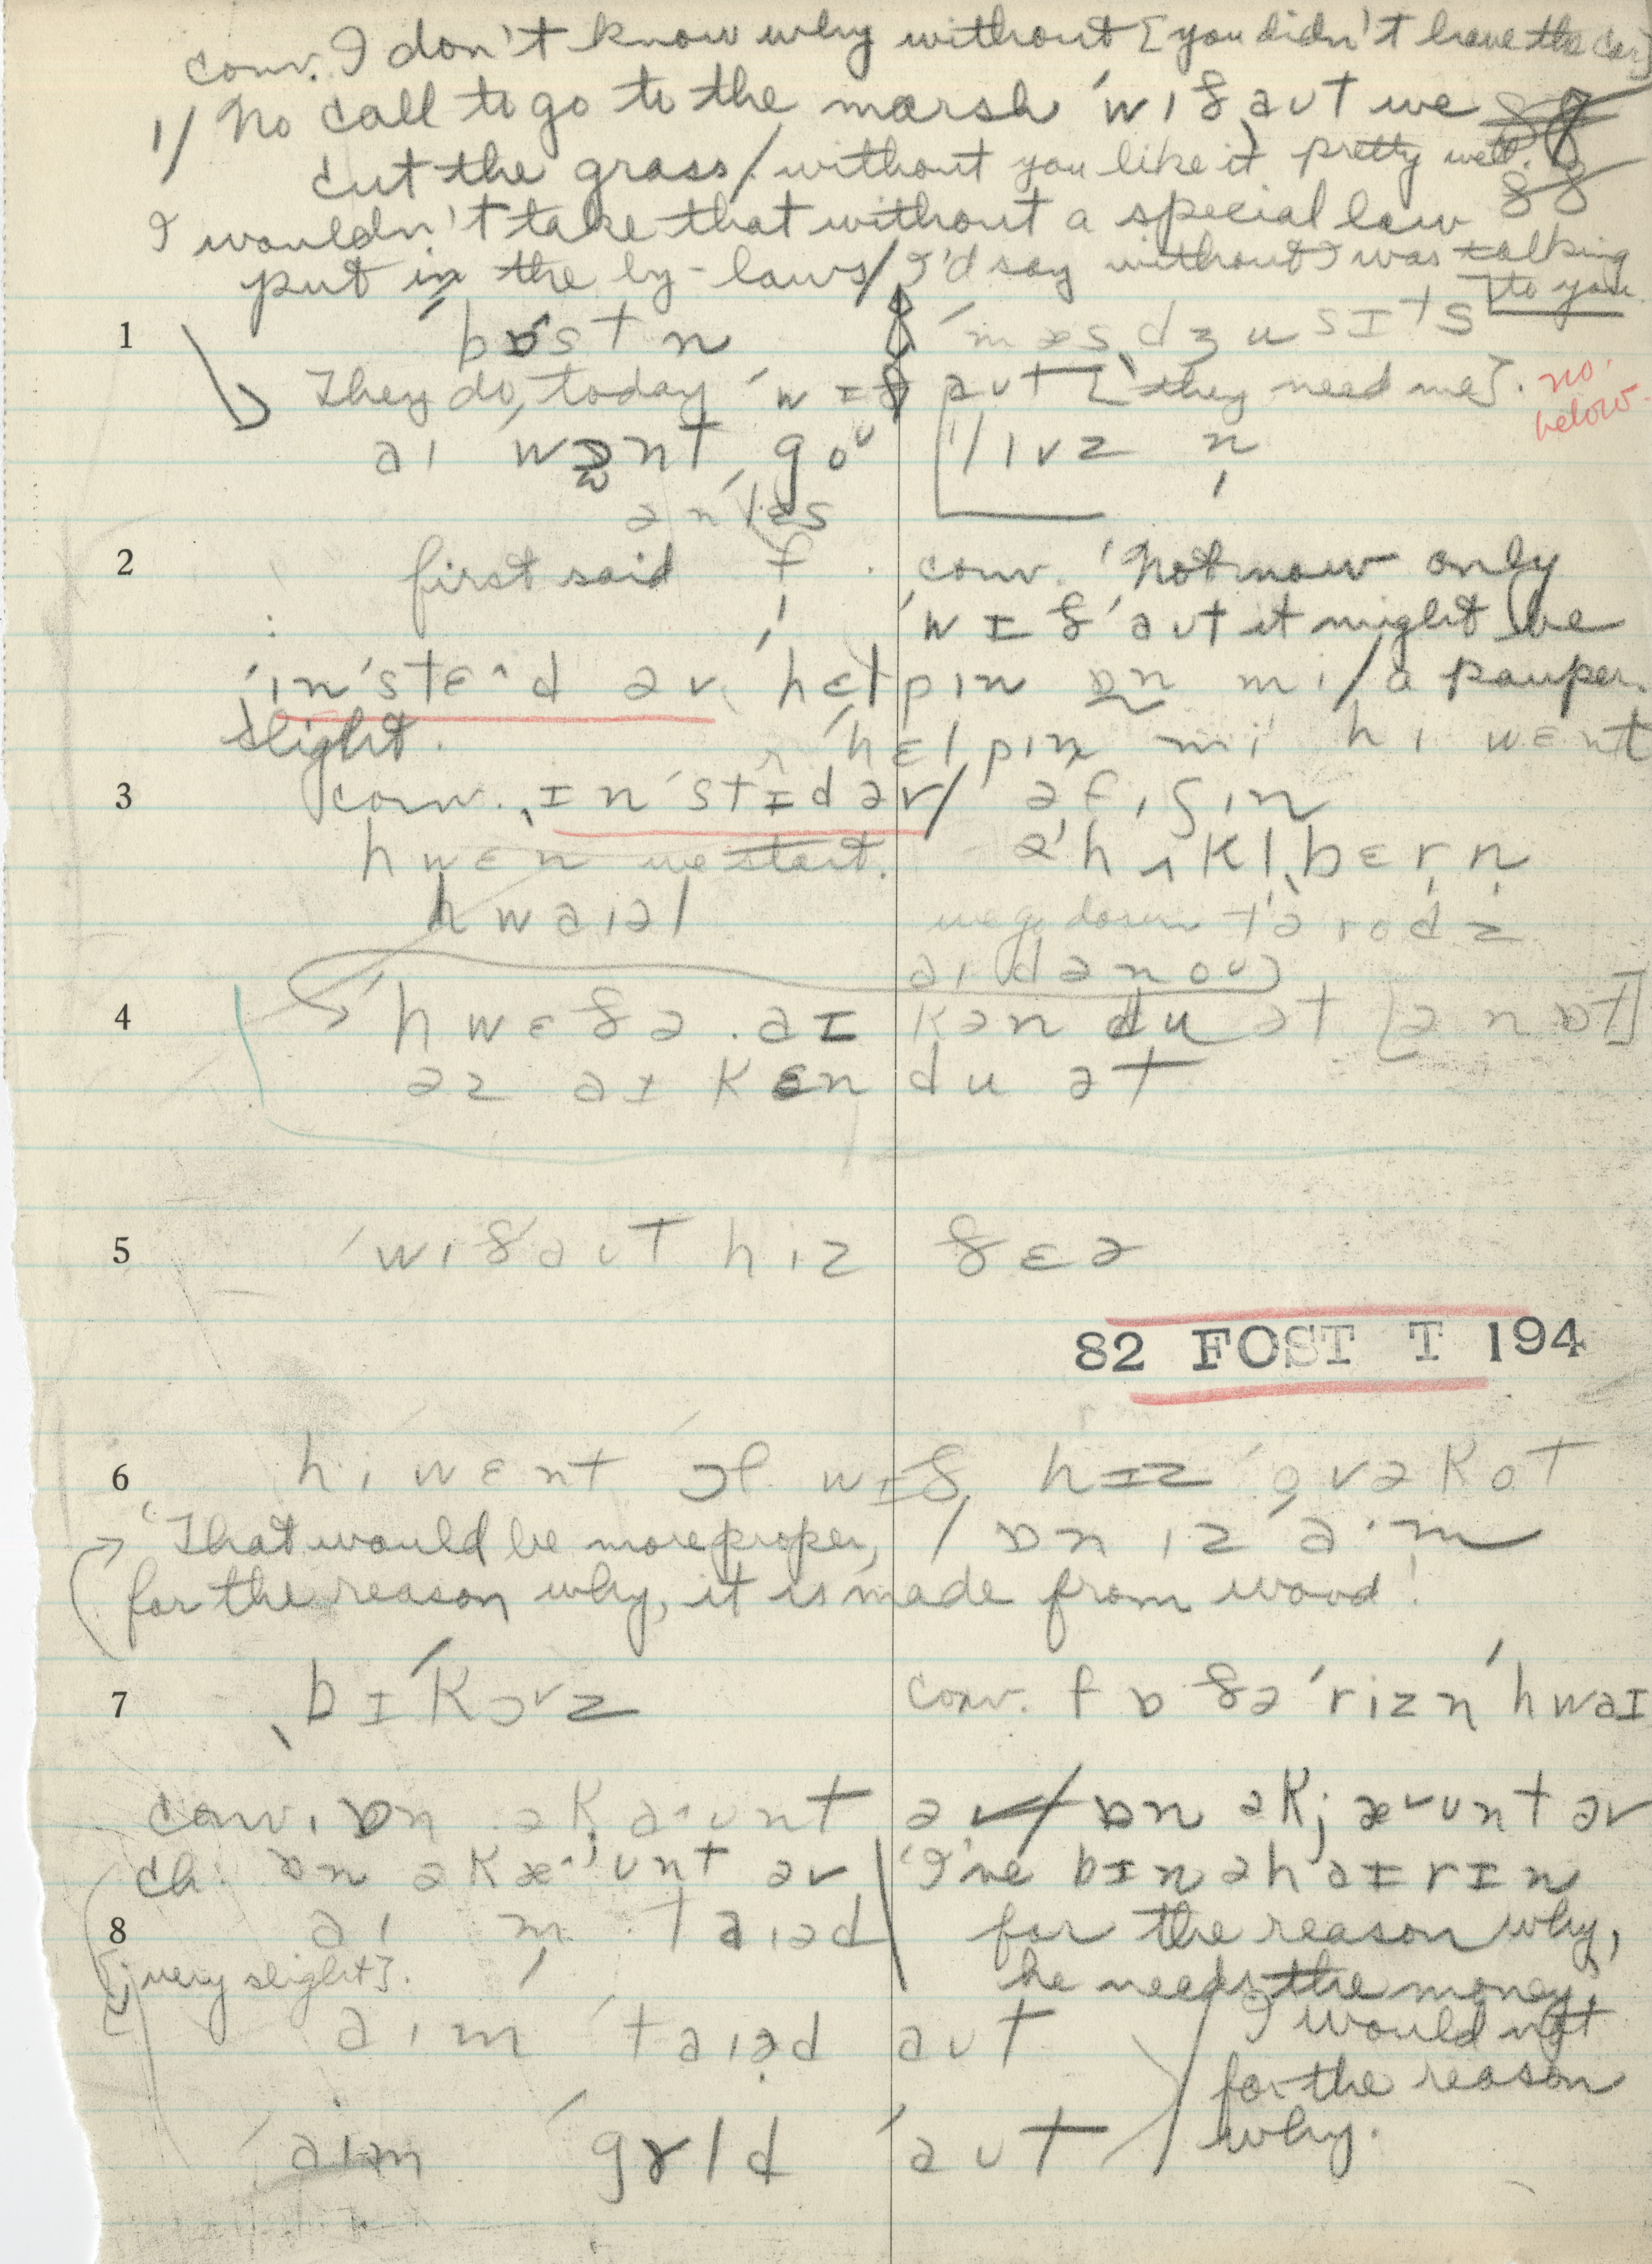 conv. I don't know why without [you didn't have the car]
1/ No call to go to the marsh 'wɪð aʊt we
cut the grass/. without you like it pretty well.
I wouldn't take that without a special law
put in the by-laws/ I'd say without I was talking
to you
1 bɒstn 'mæsˌdʒusɪts
They do, today 'wɪð aʊt [they need me]. no.
below.
aɪ wɒnt goʊ
ən'lɛs
2 first said f conv. 'Not now only
'wɪð'aʊt it might be
ˌin'stɛ^d əv 'hɛlpin ɒn mi/ a pauper.
slight. 'hɛlpin mi hi wɛnt
3 conv. ˌɪn'stɪd əv/ əfɪʃɪn
hwɛn we start. ə'hʌklˌbɛrɪn
hwaɪəl we go down tə rodz
aɪ dənoʊ
4 hwɛðə aɪ kən du ət [ə nɒt]
əz aɪ kɛn du ət
5 'wɪð'aʊt hɪz ðɛə
82 FOST T 194
6 hi wɛnt ɔf wɪð hɪz 'ovəkot
"That would be more proper, / ɒn ɪz a·m
for the reason why, it is made from wood!
7 ˌbɪ'kɔvz conv. fɒ ðə 'rizn 'hwaɪ
conv. ɒn əkaʊnt əv/ ɒn əkjæʊnt əv
ch. ɒn əkæʊnt əv 'I've bɪn əhaɪrɪn
8 aɪ m taɪəd for the reason why,
[j very slight]. he needs the money.
aɪm 'taɪəd aʊt I would not
for the reason
'aɪm 'grld 'aʊt why.